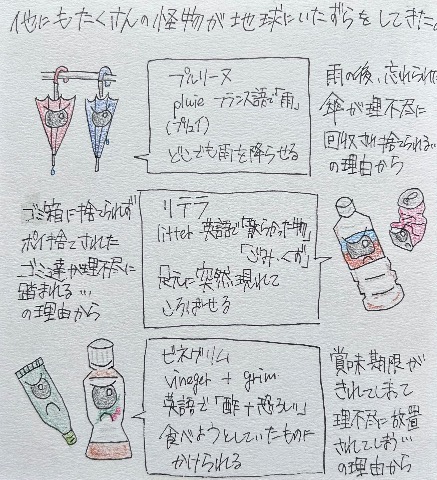 他にもたくさんの怪物が地球にいたずらをしてきた。
プルリーヌ
pluie フランス語で「雨」
(プリュイ)
どこでも雨を降らせる
雨の後、忘れられた
傘が理不尽に
回収され捨てられる…
の理由から
ゴミ箱に捨てられず
ポイ捨てされた
ゴミ達が理不尽に
踏まれる…
の理由から
リテラ
litter 英語で「散らかった物」
「ごみ・くず」
足元に突然現れて
ころばせる
ビネグリム
vineger + grim
英語で「酢+恐ろしい」
食べようとしていたものに
かけられる
賞味期限が
きれてしまって
理不尽に放置
されてしまう…
の理由から